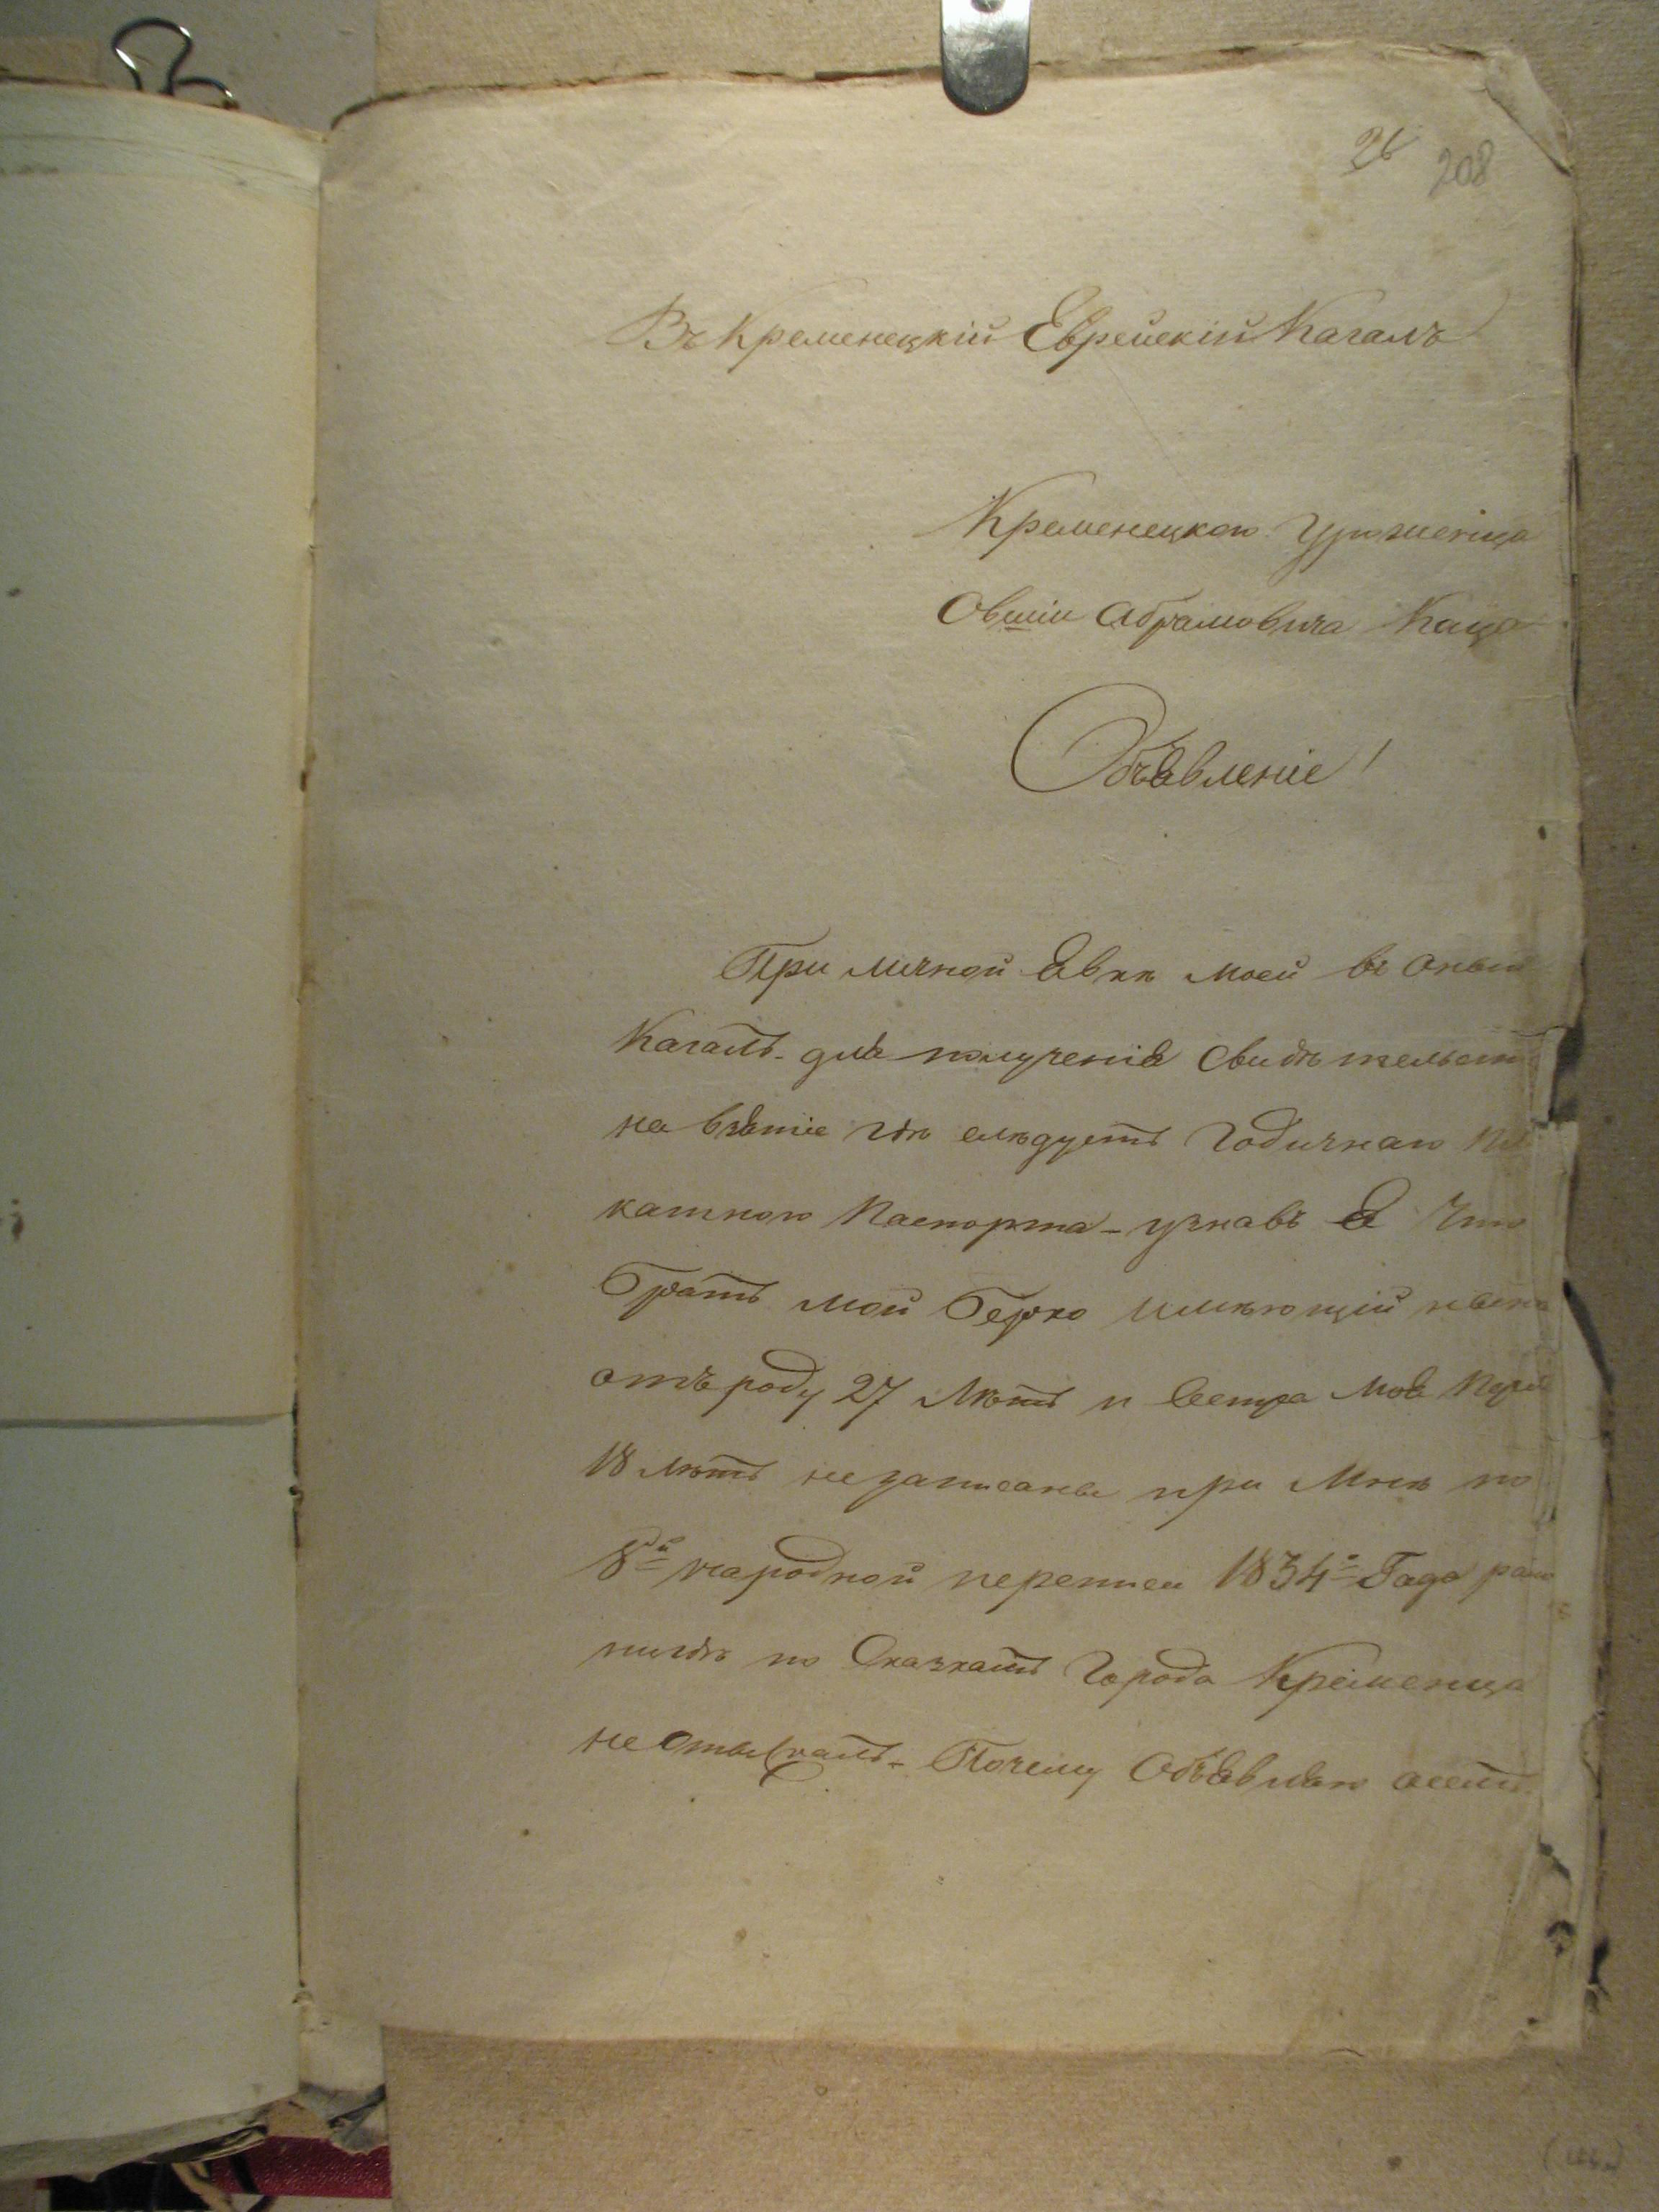 26 208
Въ Кременецкій Еврейскій Кагалъ
Кременецкого Уроженца
Овшіи Абрамовича Каца
Объявленіе!
При личной Явкѣ моей въ оный
Кагалъ - для полученія Свидѣтельст
на взятіе гдѣ слѣдуетъ Годичнаго Пла
катного Паспорта - узнавъ Я Что
Братъ мой Берко имѣющій нынѣ
отъ роду 27 Лѣтъ и Сестра Моя
18 лѣтъ не записаны при Мнѣ по
8й народной переписи 1834о Года рав
ниже по Сказкамъ Города Кременца
не Отыскалъ - Почему Объявляю